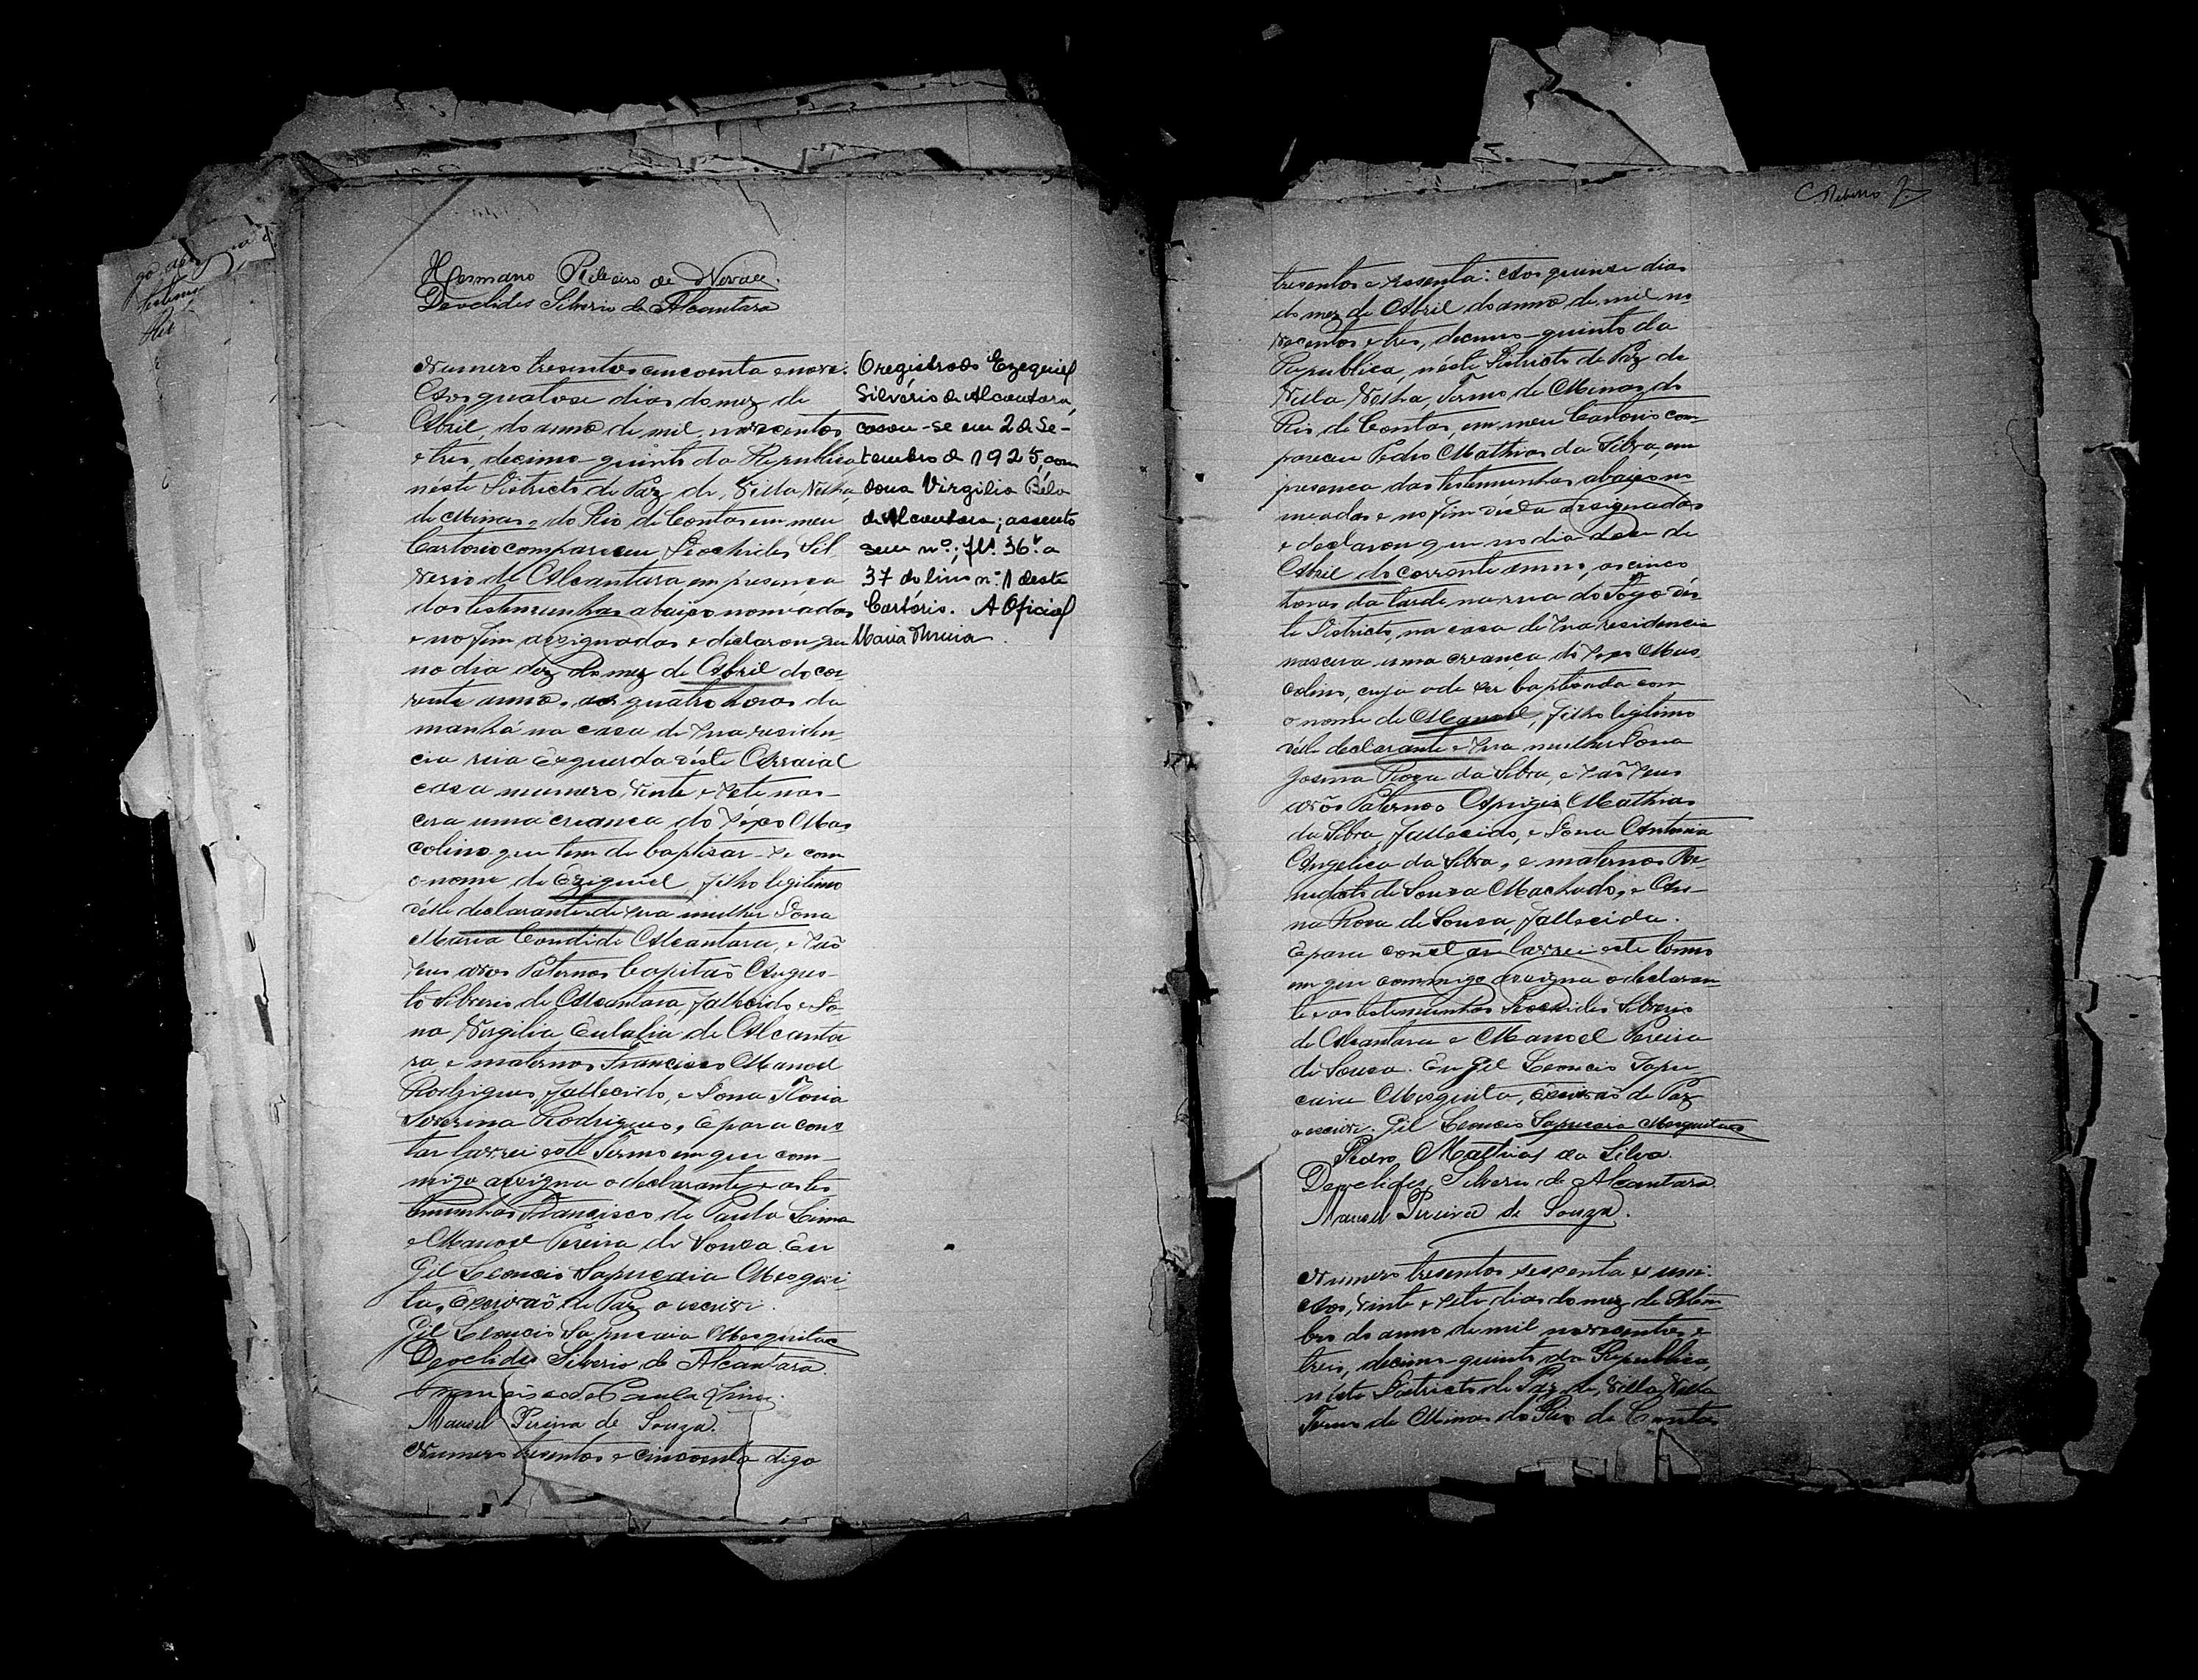 Hermano Ribeiro de Novaes
Deoclides Silverio de Alcantara
Numero tresentos cincoenta e nove:
Aos quatorse dias do mez de
Abril, do anno de mil novecentos
e tres, decimo quinto da Republica
néste Districto de Paz de, Villa Velha,
de Minas, do Rio de Contas em meu
Cartorio compareceu Deoclides Sil
verio de Alcantara em presença
das testemunhas abaixo nomeadas
e no fim assignadas e declarou que
no dia dez do mez de Abril do cor
rente anno, as quatro horas da
manhã na casa de sua residen
cia rua Esquerda déste Arraial
casa numero, vinte e sete nas-
cera uma criança do sexo Mas
colino que tem de baptisar-se com
o nome de Eziquiel, filho legitimo
déste declarante e de sua mulher Dona
Maria Candida Alcantara, e são
seus avos Paternos Capitão Augus-
to Silverio de Alcantara, fallecido e Do
na Virgilia Eulalia de Alcanta
ra, e maternos Francisco Manoel
Rodrigues, fallecido, e Dona Maria
Severina Rodrigues, E para cons
tar lavrei este Termo em que com-
migo assigna o declarante e as tes
temunhas Francisco de Paula Lima
e Manoel Pereira de Souza. Eu
Gil Leoncio Sapucaia Mesqui
ta, Escrivão de Paz o escrivi.
Gil Leoncio Sapucaia Mesquita
Deoclides Silverio de Alcantara
Francisco de Paula Lima.
Manoel Pereira de Souza.
Numero tresentos e cincoenta digo
O registrado Ezequiel
Silvério de Alcantara,
casou-se em 2 de Se-
tembro de 1925, com
dona Virgilia Béla
de Alcantara; assento
sem nº; fls. 36.v a
37 do livro nº 1 deste
Cartório. A Oficial
Maria
tresentos e sessenta: Aos quinse dias
do mez de Abril do anno de mil no
vecentos e tres, decimo-quinto da
Republica, néste Districto de Paz de
Villa Velha, Termo de Minas do
Rio de Contas, em meu Cartorio com-
pareceu Pedro Mathias da Silva, em
presença das testemunhas abaixo no
meadas e no fim désta assignadas
e declarou que no dia dose de
Abril do corrente anno, as cinco
horas da tarde, na rua do Fogo dés
te Districto, na casa de sua residencia
nascera uma creança do sexo Mas
colino, cuja ade ser baptisada com
o nome de Manoel, filho legitimo
déste declarante e sua mulher Dona
Rosa da Silva, e são seus
avós Paternos Aprigio Mathias
da Silva, fallecido, e Dona Antonia
Angelica da Silva, e maternos Be
nedicto de Souza Machado, e An-
na Rosa de Sousa, fallecida.
E para constar lavrei este termo
em que commigo assigna o declaran
te e as testemunhas Deoclides Silverio
de Alcantara e Manoel Pereira
de Sousa. Eu Gil Leoncio Sapu
caia Mesquita, Escrivão de Paz
o escrivi. Gil Leoncio Sapucaia Mesquita
Pedro Mathias da Silva
Deoclides Silverio de Alcantara
Manoel Pereira de Souza.
Numero tresentos sessenta e um:
Aos, vinte e sete dias do mez de
bro do anno de mil novecentos e
tres, decimo-quinto da Republica,
néste Districto de Paz de, Villa Velha
Termo de Minas do Rio de Contas